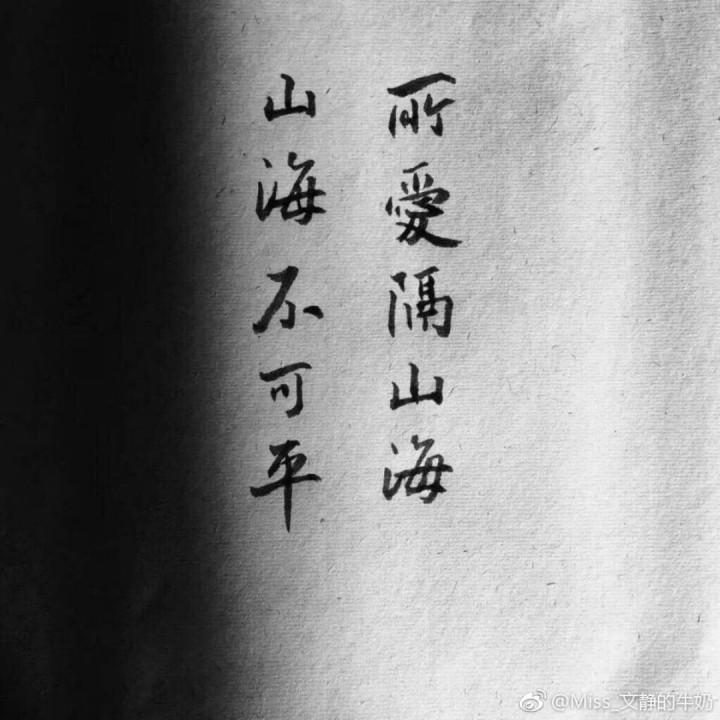 所愛隔山海
山海不可平
@Miss_文静的牛奶